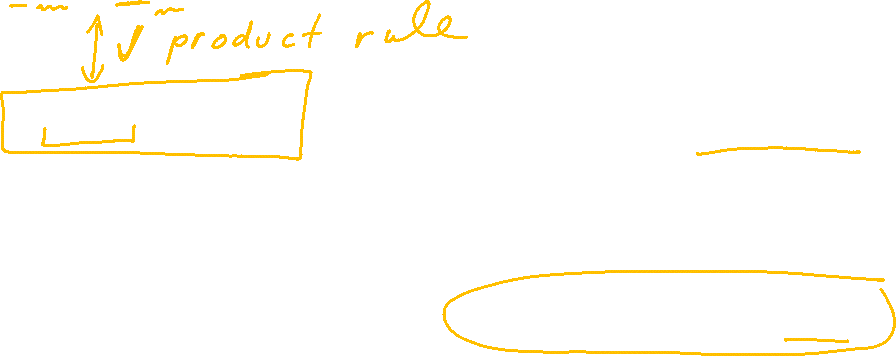 product rule